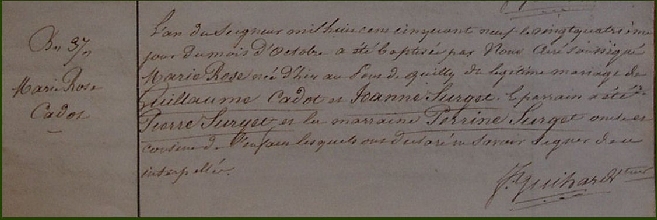 Bn 37
Marie Rose
Cadot
L'an du Seigneur mil huit cent cinquant neuf le vingt quatrième
jour du mois d'Octobre a été baptisée par Nous Curé soussigné
Marie Rose née d'hier au de quilly de légitime mariage de
Guillaume Cadot et Jeanne Surget. le parrain a été
Pierre Surget et la marraine Perrine Surget oncle et
cousine de l'enfant lesquels ont déclaré ne savoir signer de ce
interpellés.
J. Guihard